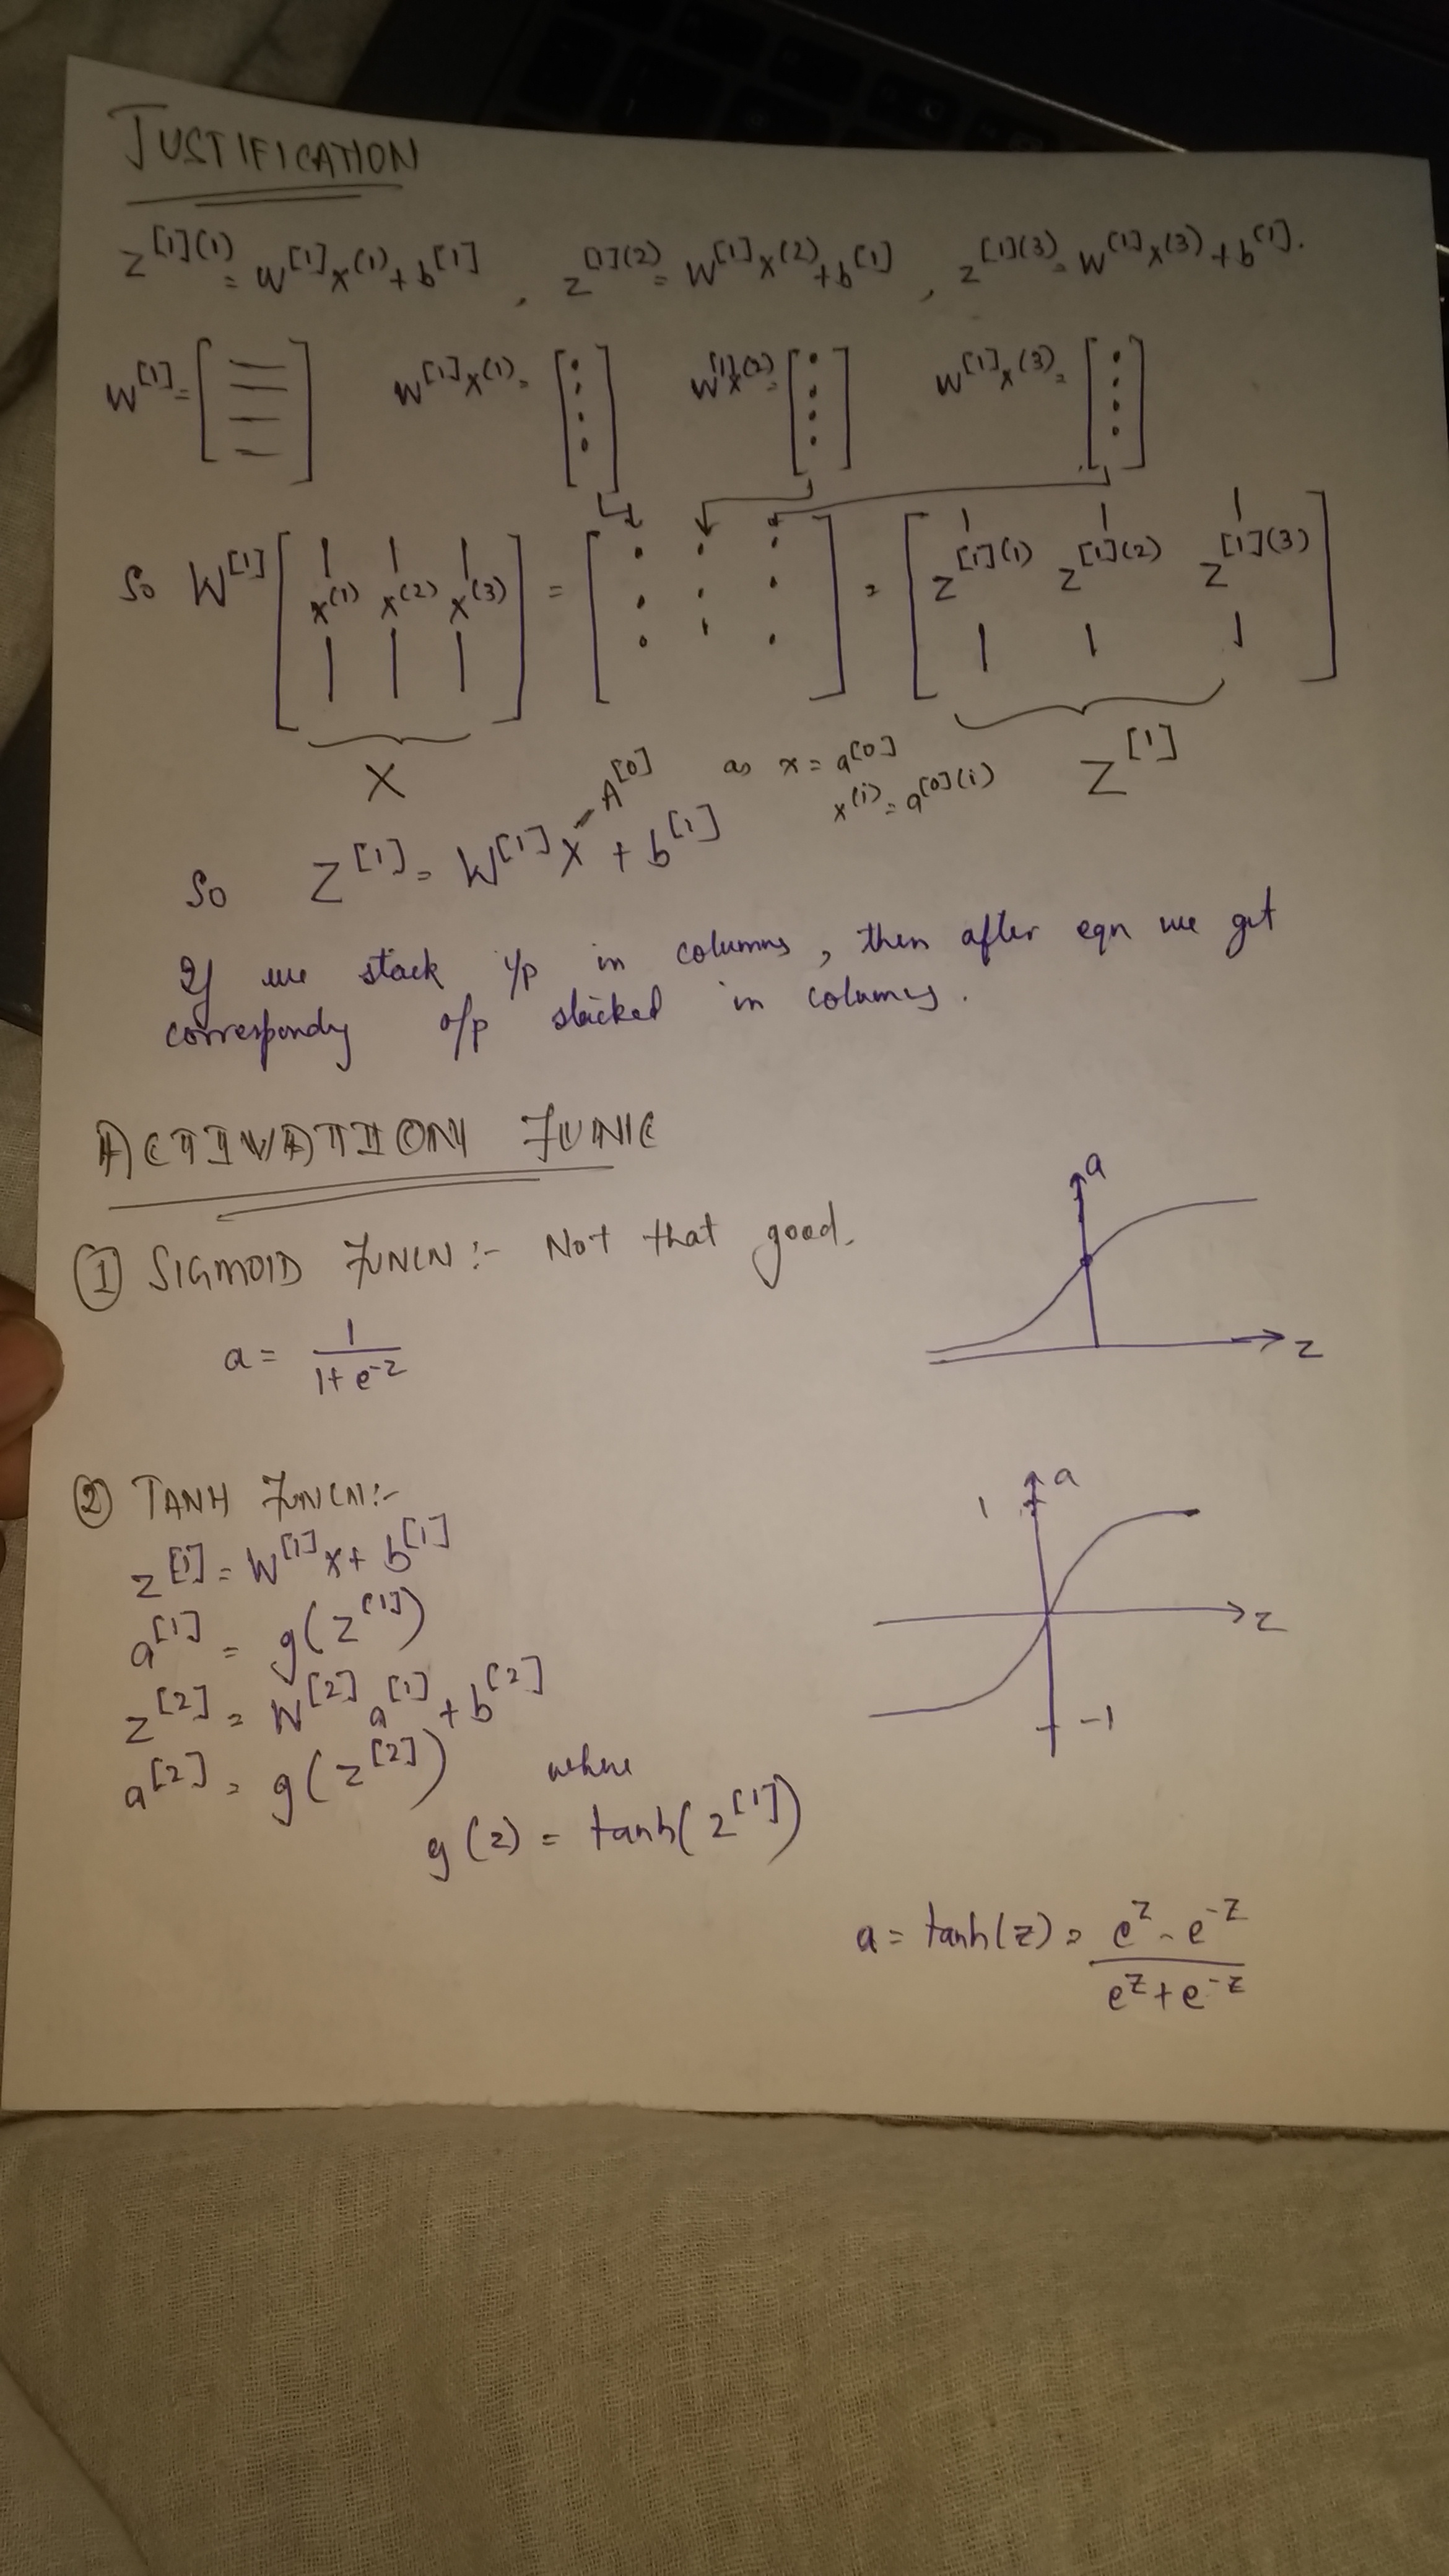 JUSTIFICATION
z^{[1](1)} = w^{[1]}x^{(1)} + b^{[1]} , z^{[1](2)} = W^{[1]}x^{(2)} + b^{[1]} , z^{[1](3)} = W^{[1]}x^{(3)} + b^{[1]}.
W^{[1]} = [ ] W^{[1]}x^{(1)} = [ ] W^{[1]}x^{(2)} = [ ] W^{[1]}x^{(3)} = [ ]
So W^{[1]} [ x^{(1)} x^{(2)} x^{(3)} ] = [ ] = [ z^{[1](1)} z^{[1](2)} z^{[1](3)} ]
X Z^{[1]}
A^{[0]} as x = a^{[0]}
x^{(i)} = a^{[0](i)}
So Z^{[1]} = W^{[1]}X + b^{[1]}
If we stack i/p in columns, then after eqn we get
correspondy o/p stacked in columns.
ACTIVATION FUNC
① SIGMOID FUNCN :- Not that good.
a
z
a = 1/(1+e^{-z})
② TANH FUNCN :-
1 a
z
-1
z^{[1]} = W^{[1]}x + b^{[1]}
a^{[1]} = g(z^{[1]})
z^{[2]} = W^{[2]} a^{[1]} + b^{[2]}
a^{[2]} = g(z^{[2]}) where
g(z) = tanh(z^{[1]})
a = tanh(z) = (e^z - e^{-z})/(e^z + e^{-z})